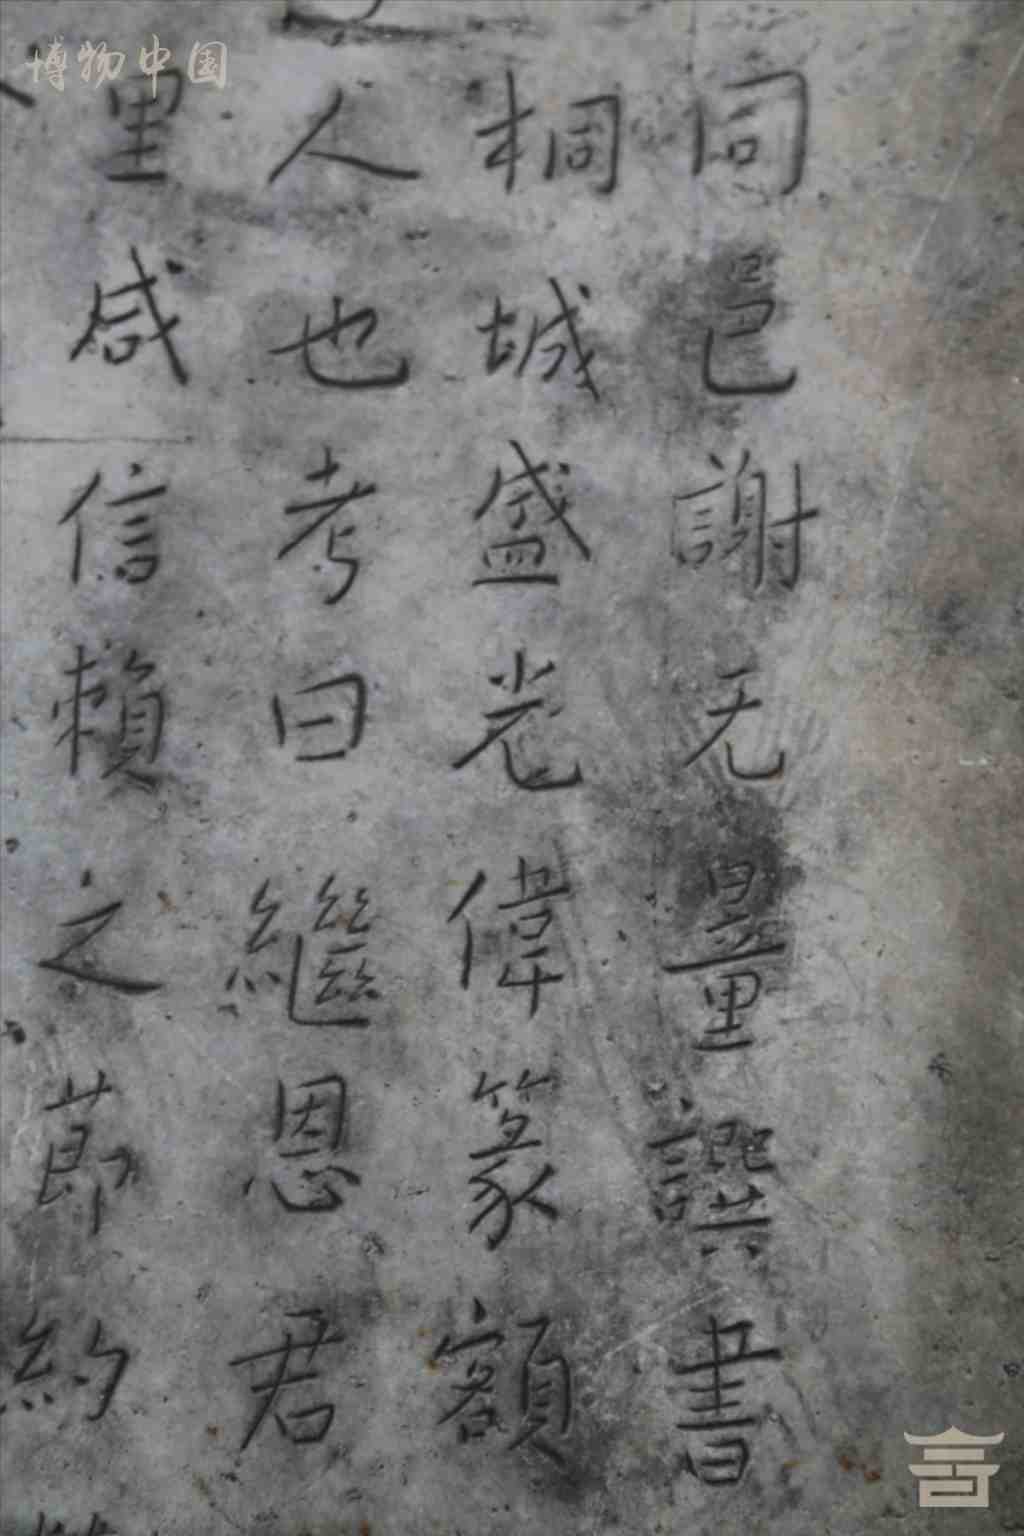 同邑謝无量譔書
桐城盛光偉篆額
人也考曰繼恩君
里咸信賴之節約
博物中国